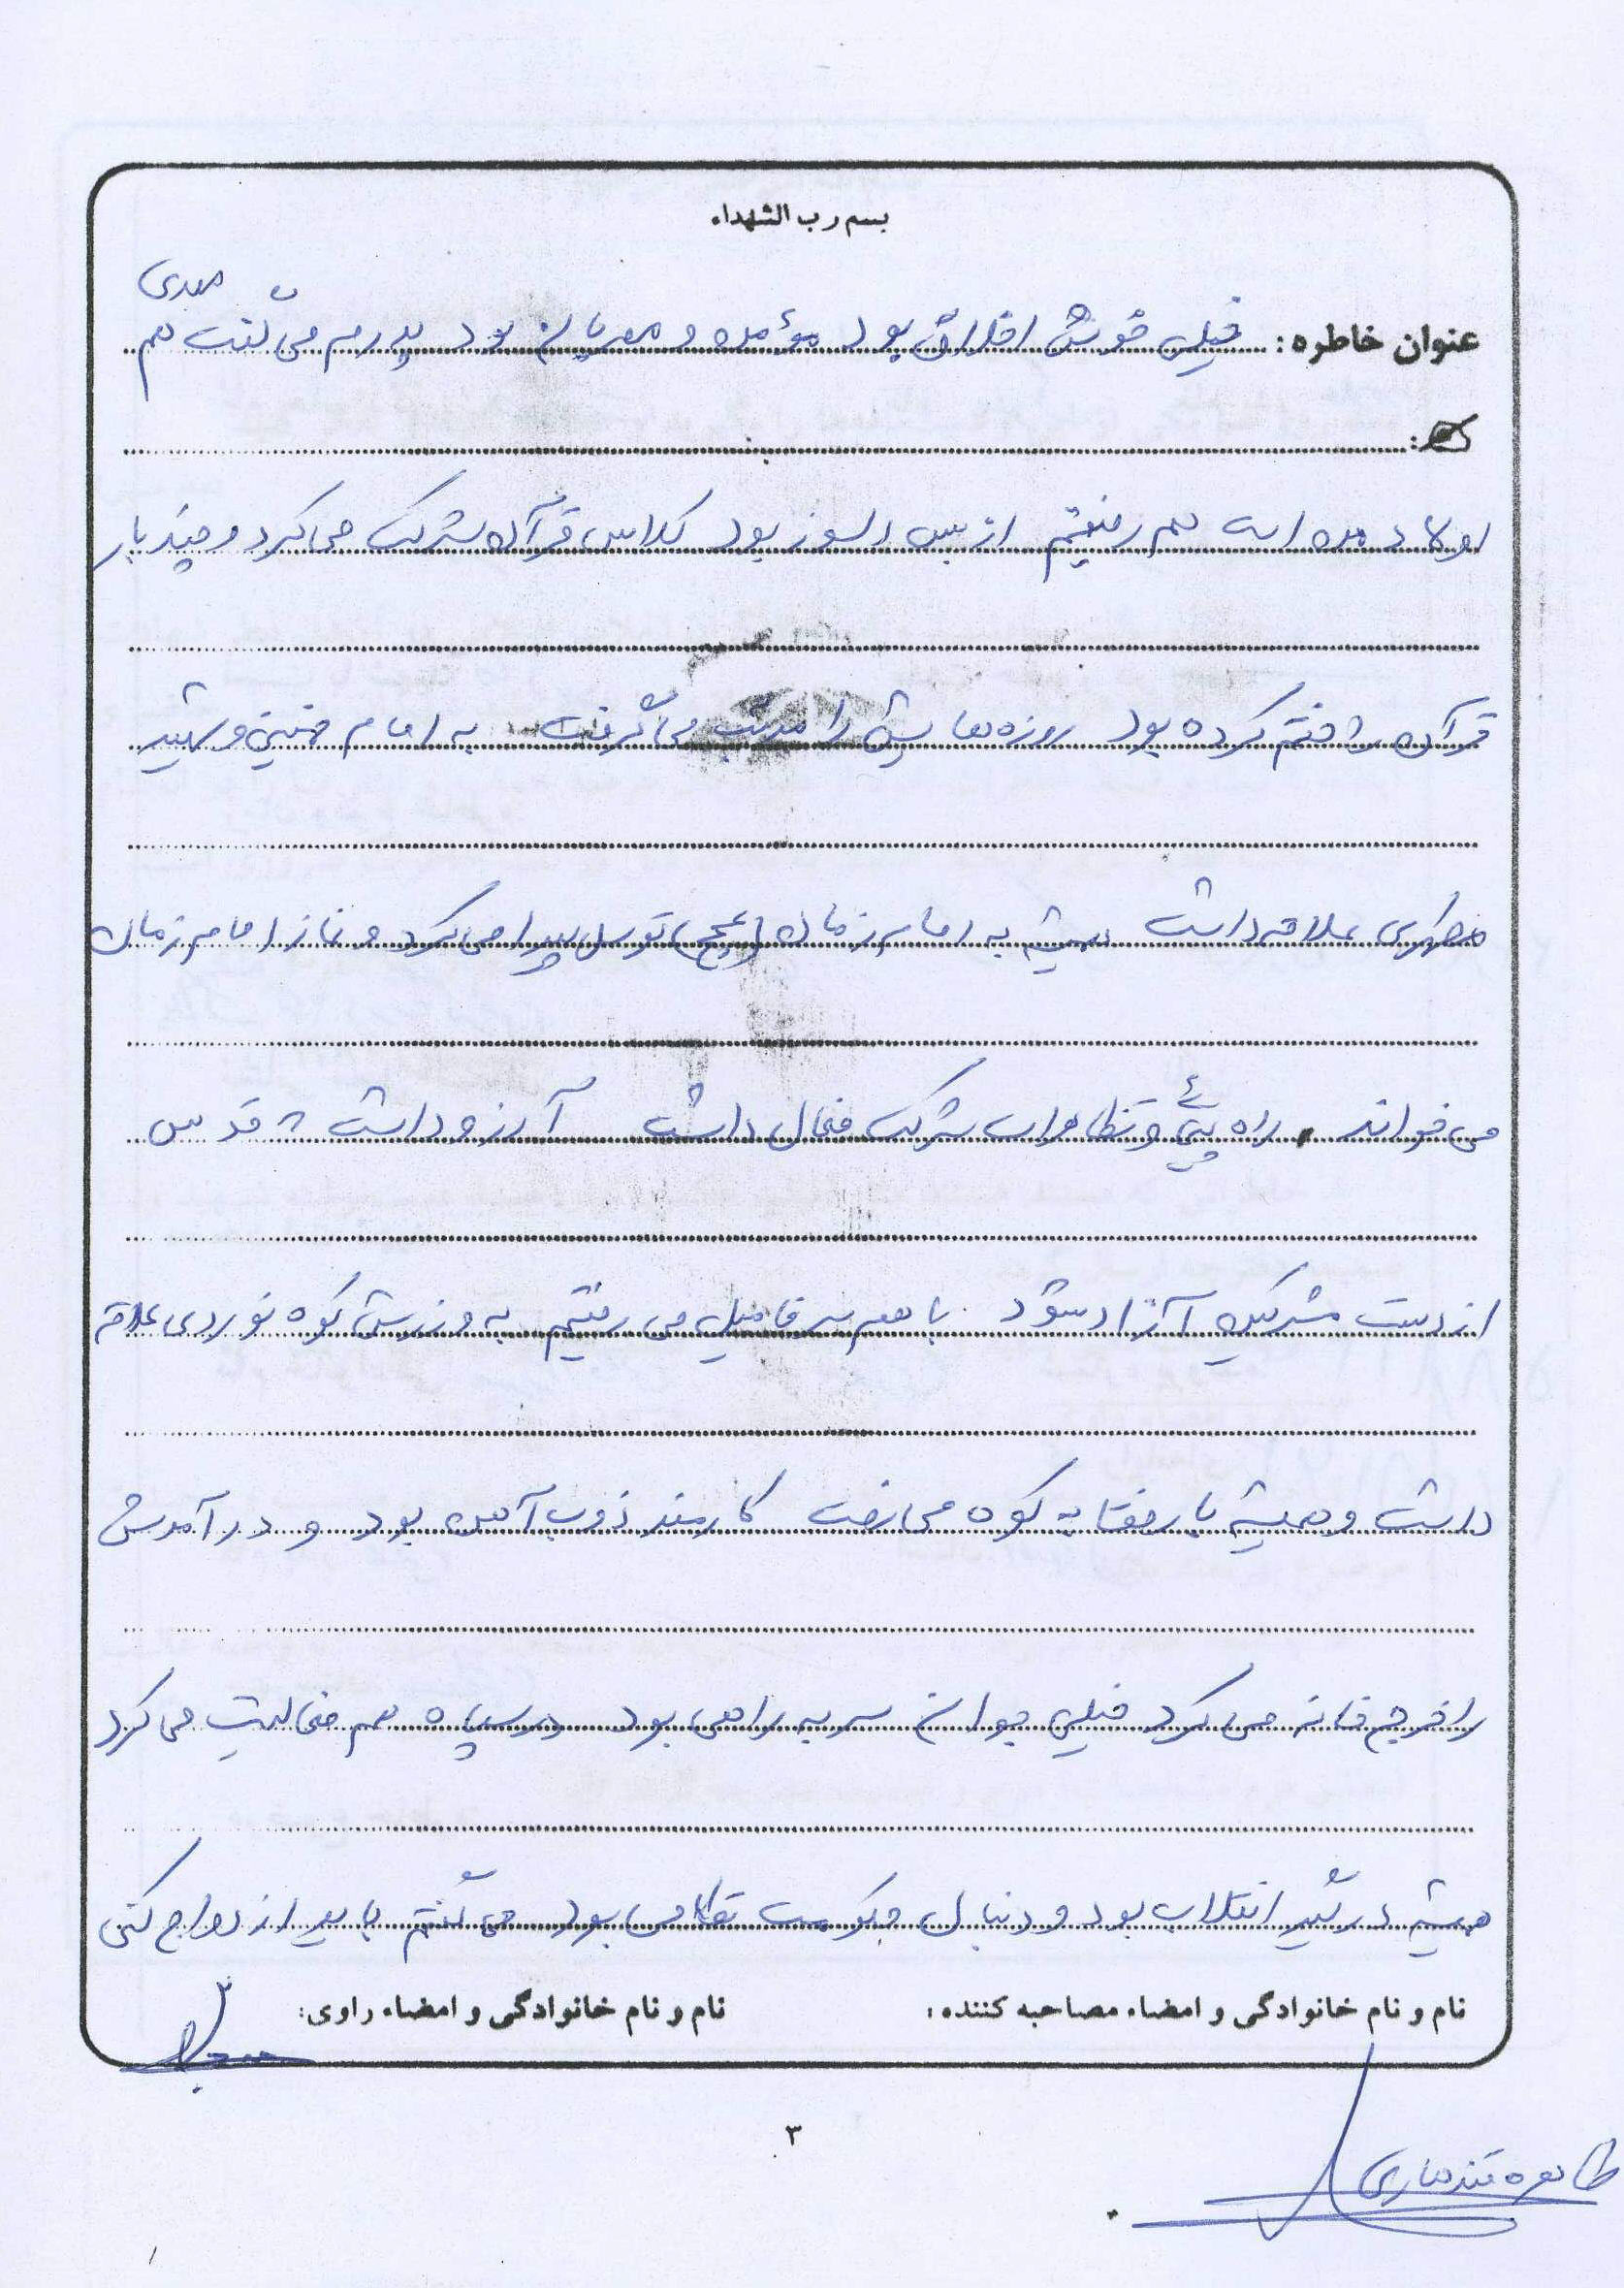 بسم رب الشهداء
مهدی
عنوان خاطره: خیلی خوش اخلاق بود مؤمن و مهربان بود پدرم می گفت هم
اولاد من است هم رفیقم از بس دلسوز بود کلاس قرآن شرکت می کرد و چند بار
قرآن را ختم کرده بود روزه هایش را مرتب می گرفت به امام خمینی و شهید
مطهری علاقه داشت همیشه به امام زمان (عج) توسل پیدا می کرد و نماز امام زمان
می خواند راه پیمائی و تظاهرات شرکت فعال داشت آرزو داشت قدس
از دست مشرکین آزاد شود با هم سر فامیل می رفتیم به ورزش کوه نوردی علاقه
داشت و همیشه با رفقا به کوه می رفت کارمند ذوب آهن بود و درآمدش
را خرج خانه می کرد خیلی جوان سر به راهی بود در سپاه هم فعالیت می کرد
همیشه درگیر انقلاب بود و دنبال حکومت نظامی بود می گفتم باید ازدواج کنی
نام و نام خانوادگی و امضاء مصاحبه کننده: نام و نام خانوادگی و امضاء راوی:
۳
طاهره قندهاری